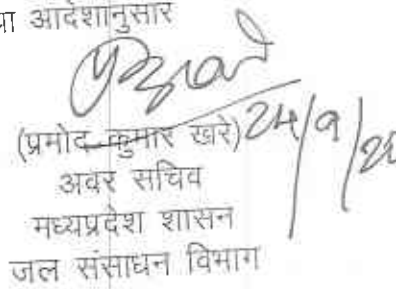 आदेशानुसार
(प्रमोद कुमार खरे) 24/9/20
अवर सचिव
मध्यप्रदेश शासन
जल संसाधन विभाग